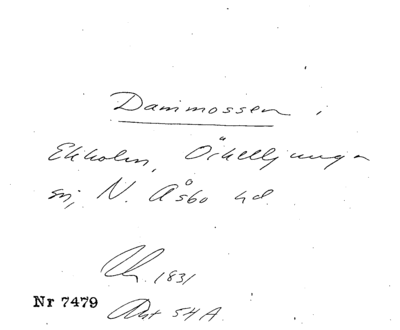 Dammossen i
Ekholm, Örkelljunga
sn, N. Åsbo hd.
1831
Nr 7479
Akt 54 A.